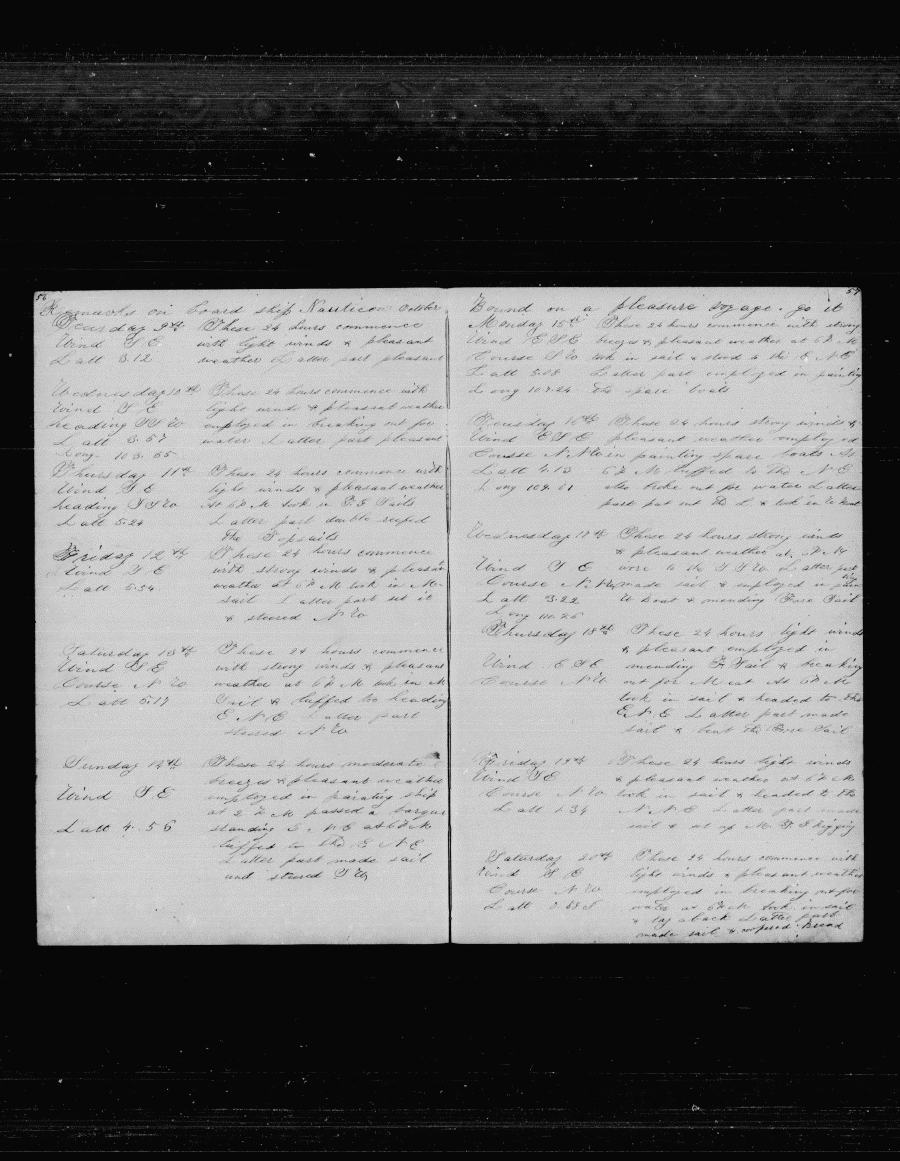 56
Remarks on board ship Nauticon October
Teusday 9th These 24 hours commence
Wind S E with light winds & pleasant
Latt 3.12 weather Latter part pleasant
Wednesday 10th These 24 hours commence with
Wind S E light winds & pleasant weather
heading S S W employed in breaking out for
Latt 3.57 water Latter part pleasant
Long 103.55
Thursday 11th These 24 hours commence with
Wind S E light winds & pleasant weather
heading S S W At 6 P M took in Sails
Latt 5.24 Latter part double reefed
the Topsails
Friday 12th These 24 hours commence
Wind S E with strong winds & pleasant
Latt 5.54 weather at 6 P M took in M
sail Latter part set it
& steered N W
Saturday 13th These 24 hours commence
Wind S E with strong winds & pleasant
Course N W weather at 6 P M took in M
Latt 5.17 Sail & luffed too heading
E N E Latter part
steered N W
Sunday 14th These 24 hours moderate
breezes & pleasant weather
Wind S E employed in painting ship
at 2 P M passed a barque
Latt 4.56 standing E N E at 6 P M
luffed to the E N E
Latter part made sail
and steered S W
57
Bound on a pleasure voyage. go it
Monday 15th These 24 hours commence with strong
Wind E S E breezes & pleasant weather at 6 P M
Course S W took in sail & stood to the E N E
Latt Latter part employed in painting
Long 107.24 the spare boats
Teusday 16th These 24 hours strong winds &
Wind E S E pleasant weather employed
Course N. N W in painting spare boats At
Latt 4.13 6 P M luffed to the N E
Long 109.21 also broke out for water Latter
part put out the L & took in W boat
Wednesday 17th These 24 hours strong winds
& pleasant weather at P M
Wind S E wore to the S S W Latter part
Course N. W made sail & employed in
Latt 3.22 W boat & mending Fore Sail
Long 110.26
Thursday 18th These 24 hours light winds
& pleasant employed in
Wind E S E mending F Sail & breaking
Course N W out for Meat At 6 P M
took in sail & headed to the
E N E Latter part made
sail & bent the Fore Sail
Friday 19th These 24 hours light winds
Wind S E & pleasant weather at 6 P M
Course N W took in sail & headed to the
Latt 1.34 N. N E Latter part made
sail & set up M. rigging
Saturday 20th These 24 hours commence with
Wind S E light winds & pleasant weather
Course N W employed in breaking out for
Latt water at 6 P M took in sail
& lay aback Latter part
made sail & coopered Bread